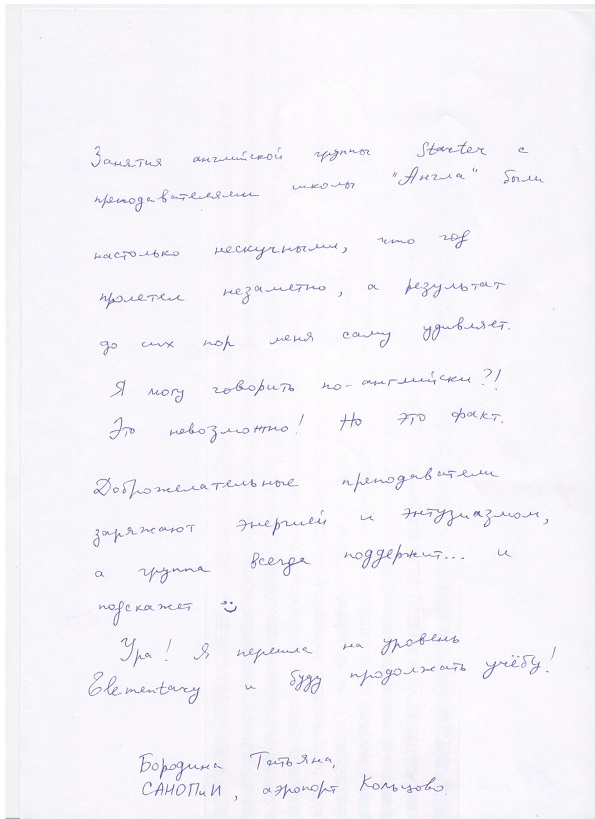 Занятия английской группы Starter с
преподавателями школы "Англа" были
настолько нескучными, что год
пролетел незаметно, а результат
до сих пор меня саму удивляет.
Я могу говорить по-английски?!
Это невозможно! Но это факт.
Доброжелательные преподаватели
заряжают энергией и энтузиазмом,
а группа всегда поддержит... и
подскажет :)
Ура! Я перешла на уровень
Elementary и буду продолжать учёбу!
Бородина Татьяна,
САНОПиИ, аэропорт Кольцово.